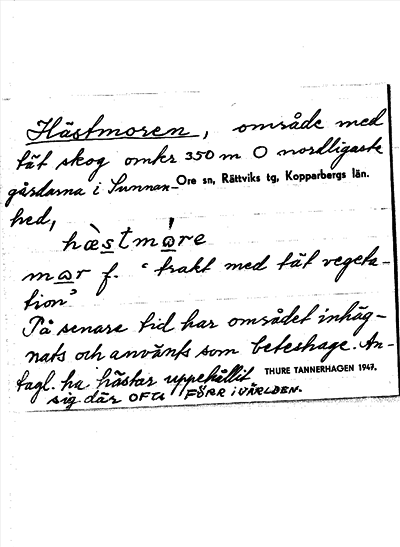 Hästmoren, område med
tät skog omkr 350 m O nordligaste
gårdarna i Sunnan-
Ore sn, Rättviks tg, Kopparbergs län.
hed,
hæ̀stmóre
mɷr f. "trakt med tät vegeta-
tion"
På senare tid har området inhäg-
nats och använts som beteshage. An-
tagl. ha hästar uppehållit
THURE TANNERHAGEN 1947.
sig där OFTA FÖRR i VÄRLDEN.